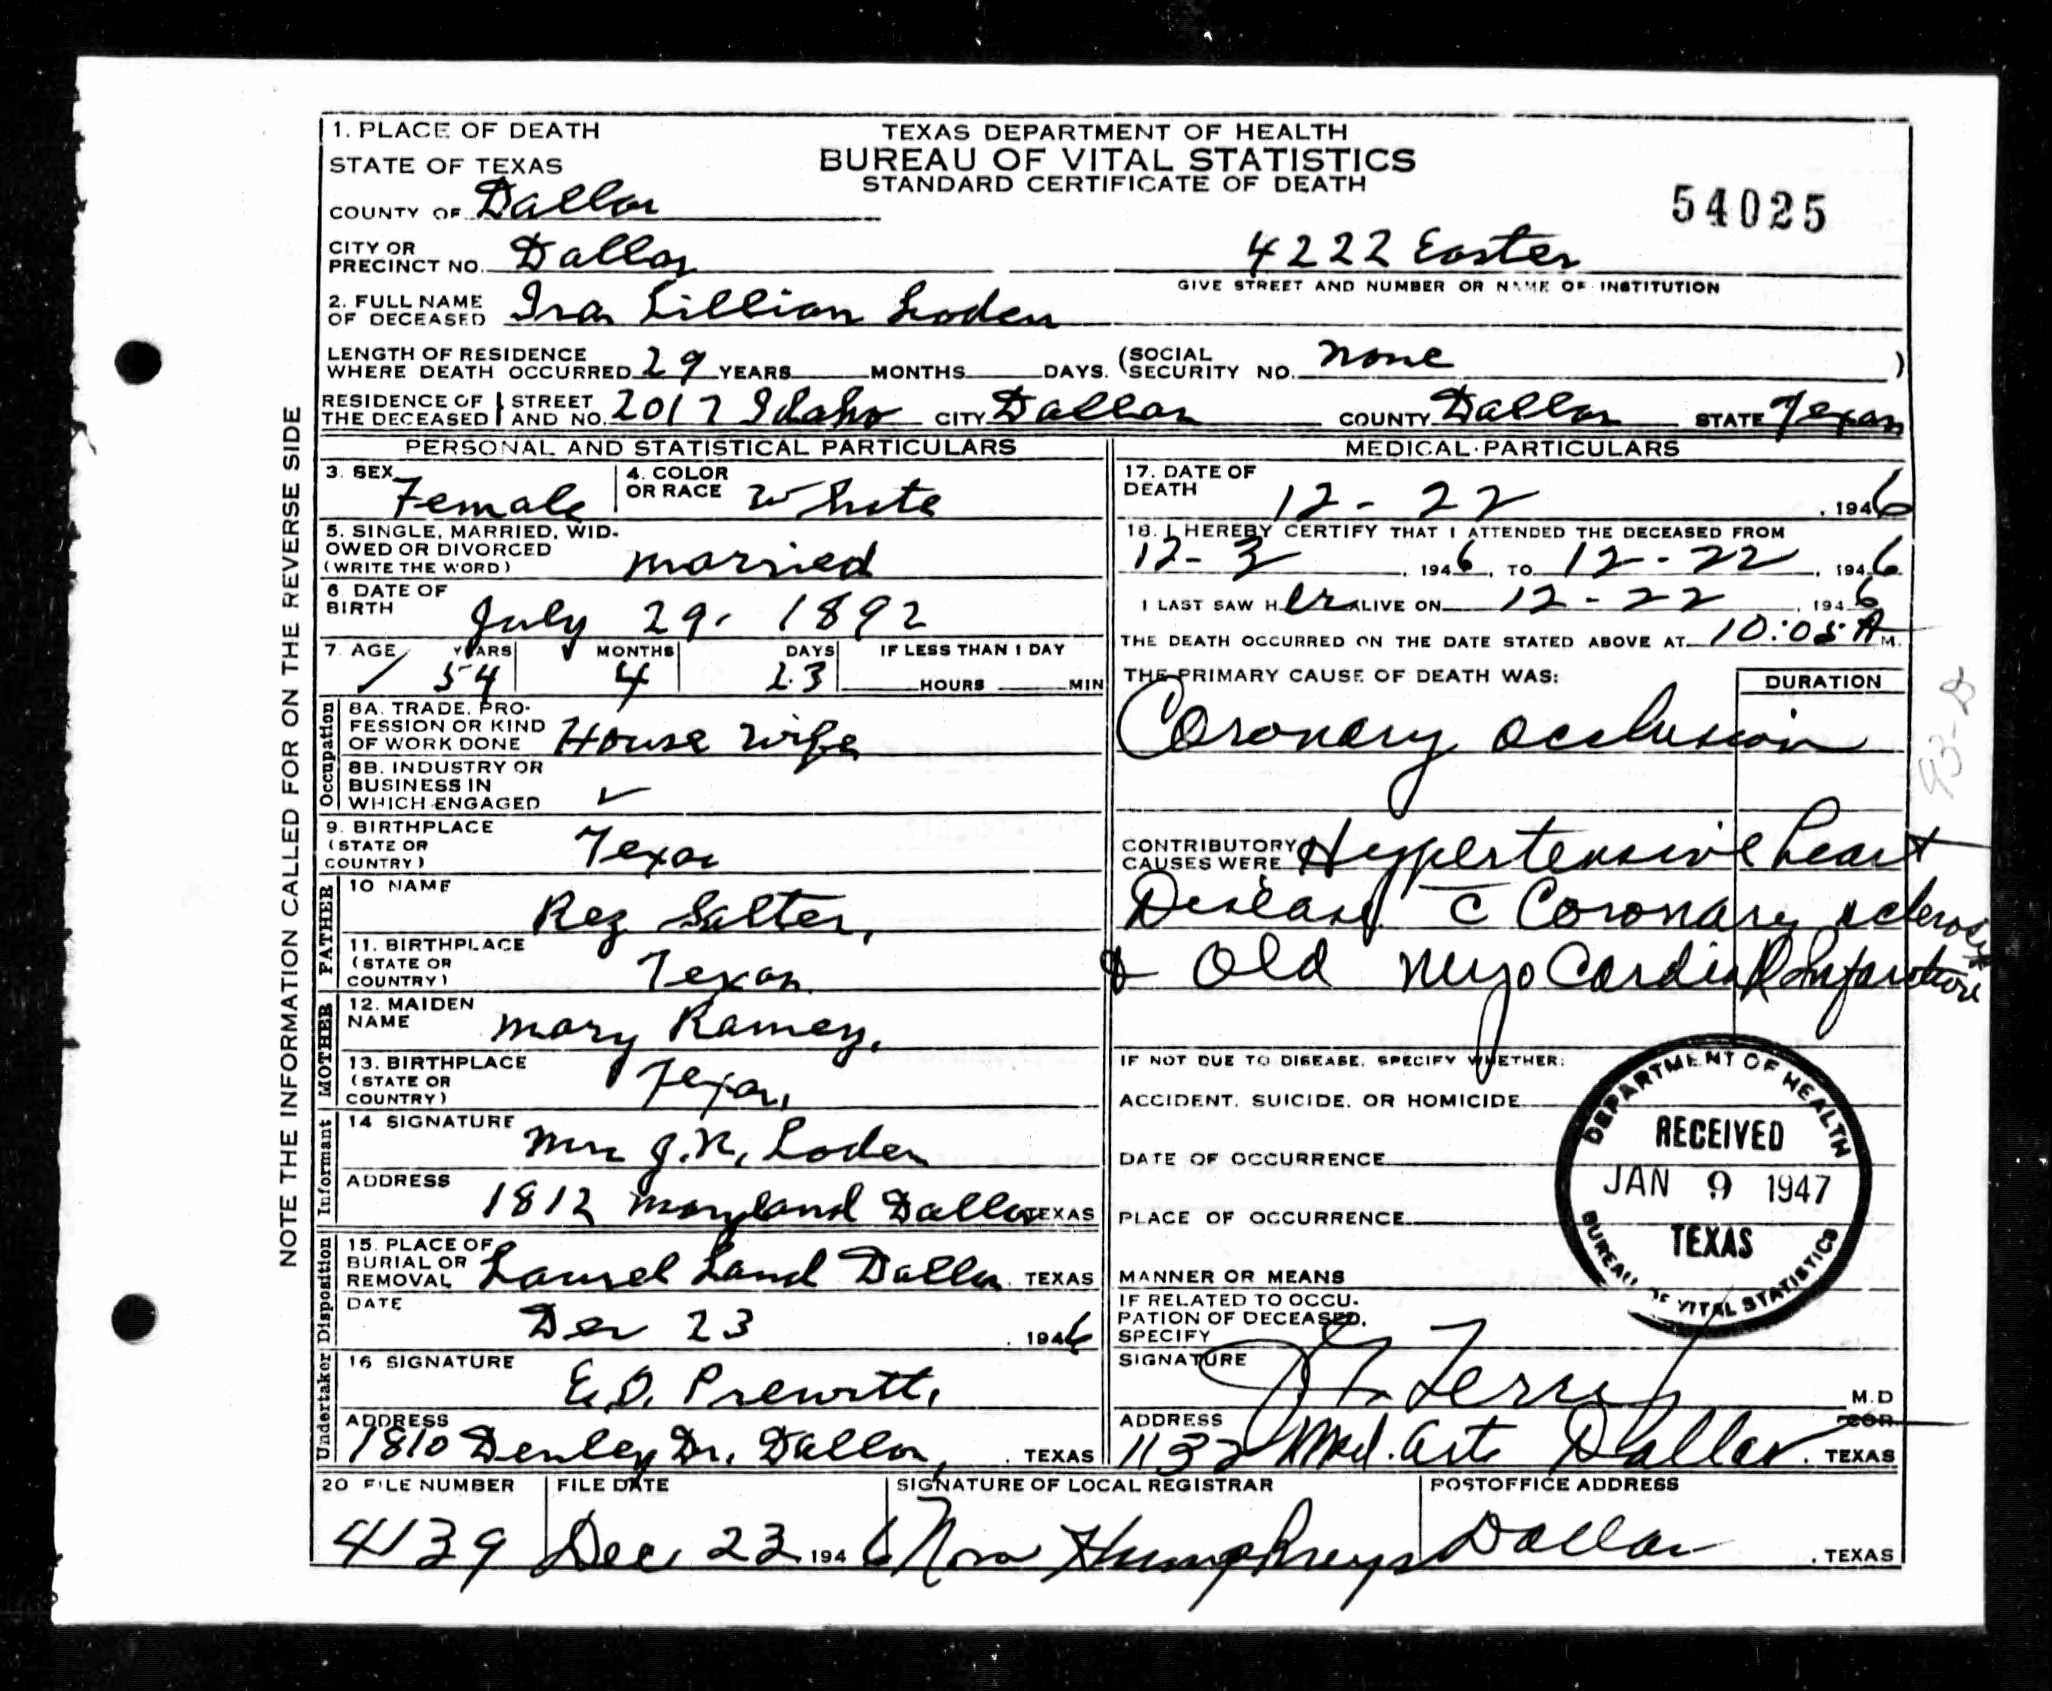 1. PLACE OF DEATH
STATE OF TEXAS
COUNTY OF Dallas
TEXAS DEPARTMENT OF HEALTH
BUREAU OF VITAL STATISTICS
STANDARD CERTIFICATE OF DEATH
54025
CITY OR
PRECINCT NO. Dallas
4222 Easter
GIVE STREET AND NUMBER OR NAME OF INSTITUTION
2. FULL NAME
OF DECEASED Ira Lillian Loden
LENGTH OF RESIDENCE
WHERE DEATH OCCURRED 29 YEARS MONTHS DAYS. (SOCIAL SECURITY NO. none )
RESIDENCE OF THE DECEASED STREET AND NO. 2017 Idaho CITY Dallas COUNTY Dallas STATE Texas
NOTE THE INFORMATION CALLED FOR ON THE REVERSE SIDE
PERSONAL AND STATISTICAL PARTICULARS
3. SEX Female
4. COLOR OR RACE White
5. SINGLE, MARRIED, WID-
OWED OR DIVORCED
(WRITE THE WORD) married
6 DATE OF
BIRTH July 29, 1892
7. AGE YEARS MONTHS DAYS IF LESS THAN 1 DAY
54 4 23 HOURS MIN
Occupation
8A. TRADE, PRO-
FESSION OR KIND
OF WORK DONE House wife
8B. INDUSTRY OR
BUSINESS IN
WHICH ENGAGED ✓
9. BIRTHPLACE
(STATE OR
COUNTRY) Texas
FATHER
10 NAME Rez Salter,
11. BIRTHPLACE
(STATE OR
COUNTRY) Texas
MOTHER
12. MAIDEN
NAME Mary Ramey,
13. BIRTHPLACE
(STATE OR
COUNTRY) Texas,
Informant
14 SIGNATURE Mrs J.R. Loden
ADDRESS 1812 Maryland Dallas TEXAS
Disposition
15. PLACE OF
BURIAL OR
REMOVAL Laurel Land Dallas. TEXAS
DATE Dec 23 , 1946
Undertaker
16 SIGNATURE E.D. Prewitt,
ADDRESS
1810 Denley Dr. Dallas, TEXAS
MEDICAL PARTICULARS
17. DATE OF
DEATH 12-22 , 1946
18. I HEREBY CERTIFY THAT I ATTENDED THE DECEASED FROM
12-3 , 1946, TO 12-22, 1946
I LAST SAW Her ALIVE ON 12-22, 1946
THE DEATH OCCURRED ON THE DATE STATED ABOVE AT 10:05 A M.
THE PRIMARY CAUSE OF DEATH WAS: DURATION
Coronary occlusion
CONTRIBUTORY
CAUSES WERE Hypertensive heart
Disease c̄ Coronary sclerosis
& Old Myo Cardial Infarction
IF NOT DUE TO DISEASE, SPECIFY WHETHER:
ACCIDENT, SUICIDE, OR HOMICIDE
DATE OF OCCURRENCE
PLACE OF OCCURRENCE
MANNER OR MEANS
IF RELATED TO OCCU-
PATION OF DECEASED,
SPECIFY
DEPARTMENT OF HEALTH
RECEIVED
JAN 9 1947
TEXAS
BUREAU OF VITAL STATISTICS
SIGNATURE Terrell M.D
COR
ADDRESS
1132 Med. Arts Dallas. TEXAS
20 FILE NUMBER FILE DATE SIGNATURE OF LOCAL REGISTRAR POSTOFFICE ADDRESS
4139 Dec 23 1946 Nora Humphreys Dallas, TEXAS